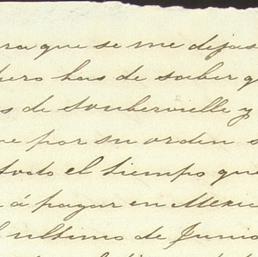 ra que se me dejas
pero has de saber q
s de Soubervielle y
e por su orden s
todo el tiempo que
á pagar en Mexic
l ultimo de Junio